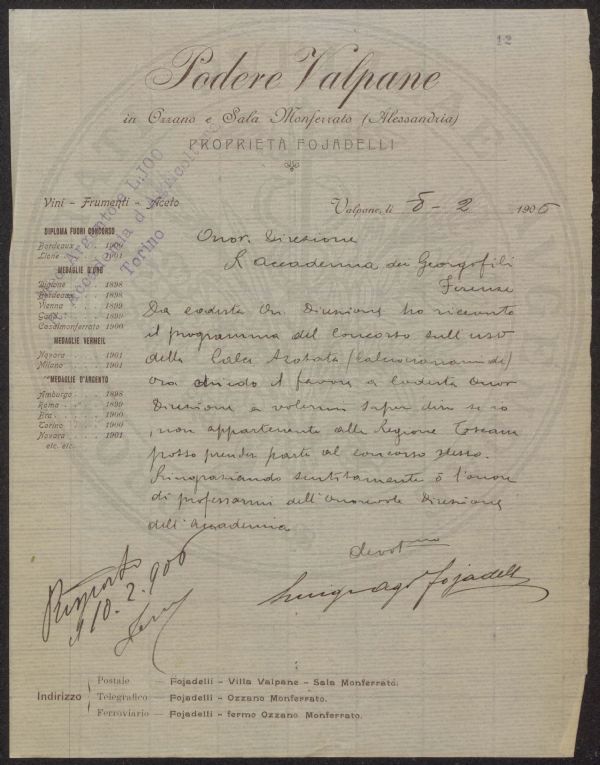 12
Podere Valpane
in Ozzano e Sala Monferrato (Alessandria)
PROPRIETÀ FOJADELLI
Vini - Frumenti - Aceto
Valpane, li 8 - 2 1906
DIPLOMA FUORI CONCORSO
Bordeaux . . 1900
Lione . . . 1901
MEDAGLIE D'ORO
Digione . . 1898
Bordeaux . . 1898
Vienna . . . 1899
Gand . . . 1899
Casalmonferrato 1900
MEDAGLIE VERMEIL
Novara . . . 1901
Milano . . . 1901
MEDAGLIE D'ARGENTO
Amburgo . . 1898
Roma . . . 1899
Bra . . . 1900
Torino . . . 1900
Novara . . . 1901
etc. etc.
Argento L. 100
Accademia d'Agricoltura
Torino
Onor. Direzione
R. accademia dei Georgofili
Firenze
Da codesta On. Direzione ho ricevuto
il programma del Concorso sull'uso
della Calce Azotata (Calciocianamide)
ora chiedo il favore a Codesta Onor
Direzione a volermi saper dire se io
, non appartenente alla Regione Toscana
posso prender parte al concorso stesso.
Ringraziando sentitamente ò l'onore
di professarmi dell'Onorevole Direzione
dell'Accademia
devotmo
Fojadelli
Risposto
10.2.906
Indirizzo
Postale — Fojadelli - Villa Valpane - Sala Monferrato.
Telegrafico — Fojadelli - Ozzano Monferrato.
Ferroviario — Fojadelli - fermo Ozzano Monferrato.